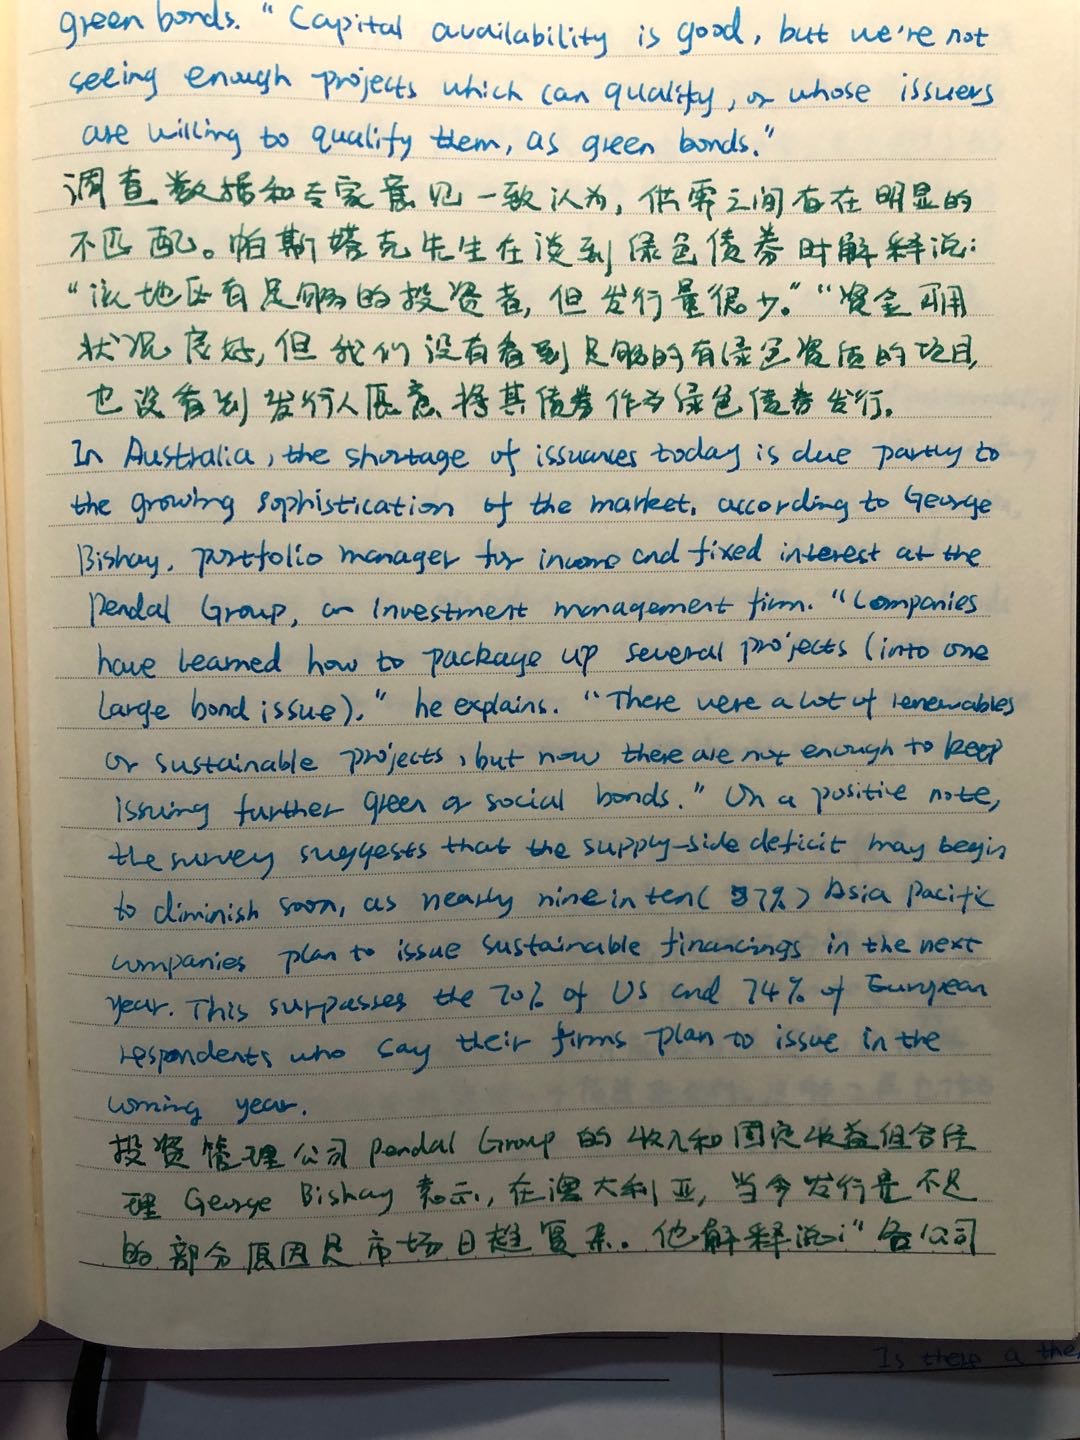 green bonds. "Capital availability is good, but we're not
seeing enough projects which can qualify, or whose issuers
are willing to qualify them, as green bonds."
调查数据和专家意见一致认为，供需之间存在明显的
不匹配。帕斯塔克先生在谈到绿色债券时解释说：
"该地区有足够的投资者，但发行量很少。""资金可用
状况良好，但我们没有看到足够的有绿色资质的项目，
也没看到发行人愿意将其债券作为绿色债券发行。
In Australia, the shortage of issuances today is due partly to
the growing sophistication of the market, according to George
Bishay, portfolio manager for income and fixed interest at the
Pendal Group, an investment management firm. "Companies
have learned how to package up several projects (into one
large bond issue)," he explains. "There were a lot of renewables
or sustainable projects, but now there are not enough to keep
issuing further green or social bonds." On a positive note,
the survey suggests that the supply-side deficit may begin
to diminish soon, as nearly nine in ten (87%) Asia Pacific
companies plan to issue sustainable financings in the next
year. This surpasses the 70% of US and 74% of European
respondents who say their firms plan to issue in the
coming year.
投资管理公司 Pendal Group 的收入和固定收益组合经
理 George Bishay 表示，在澳大利亚，当今发行量不足
的部分原因是市场日趋复杂。他解释说："各公司
Is there a the